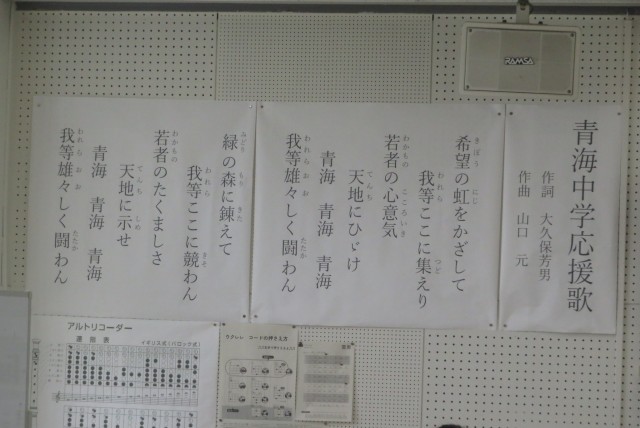 青海中学応援歌
作詞 大久保芳男
作曲 山口 元
希望の虹をかざして
我等ここに集えり
若者の心意気
天地にひゞけ
青海 青海 青海
我等雄々しく闘わん
緑の森に錬えて
我等ここに競わん
若者のたくましさ
天地に示せ
青海 青海 青海
我等雄々しく闘わん
RAMSA
アルトリコーダー
運指表
イギリス式(バロック式)